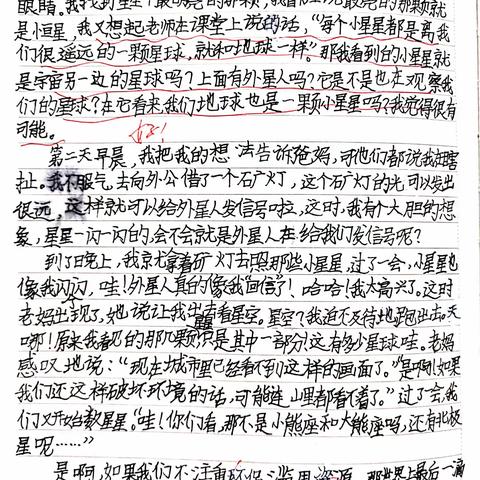 眼睛。我找到星星？最明亮的那颗，我看向天最亮的那颗就
是小恒星，我又想起老师在课堂上说的话，“每个小星星都是离我
们很遥远的一颗星球，就和地球一样”。那我看到的小星星就
是宇宙另一边的星球吗？上面有外星人吗？它是不是也在观察我
们的星球？在它看来我们地球也是一颗小星星吗？我觉得很有
可能。
好！
第二天早晨，我把我的想法告诉爸妈，可他们都说我在瞎
扯。我不服气，去向外公借了一个石广灯，这个石广灯的光可以发出
很远，这样就可以给外星人发信号啦，这时，我有个大胆的想
象，星星一闪一闪的，会不会就是外星人在给我们发信号呢？
到了晚上，我就拿着矿灯去照那些小星星，过了一会，小星星也
像我闪闪，哇！外星人真的像我回信了！哈哈！我太高兴了。这时
老妈出现了，她说让我出去看星空。星空？我迫不及待地跑出去。天
哪！原来我看见的那几颗只是其中一部分！这有多少星球哇。老妈
感叹地说：“现在城市里已经看不到这样的画面了。”是啊！如果
我们还这样破坏环境的话，可能连山里都看不着了。”过了会，我
们又开始数星星。“哇！你们看，那不是小熊座和大熊座吗，还有北极
星呢……”
是啊，如果我们不注重环保，滥用资源，那世界上最后一滴